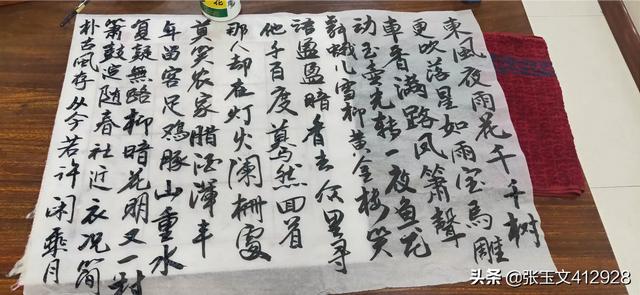 東風夜雨花千千樹
更吹落星如雨宝馬雕
車香满路凤箫聲
动玉壶光转一夜鱼龙
舞蛾儿雪柳黄金缕笑
语盈盈暗香去众里寻
他千百度蓦然回首
那人却在灯火阑栅處
莫笑农家腊酒渾丰
年留客足鸡豚山重水
复疑無路柳暗花明又一村
箫鼓追随春社近衣况简
朴古风存从今若许闲乘月
头条 @张玉文412928